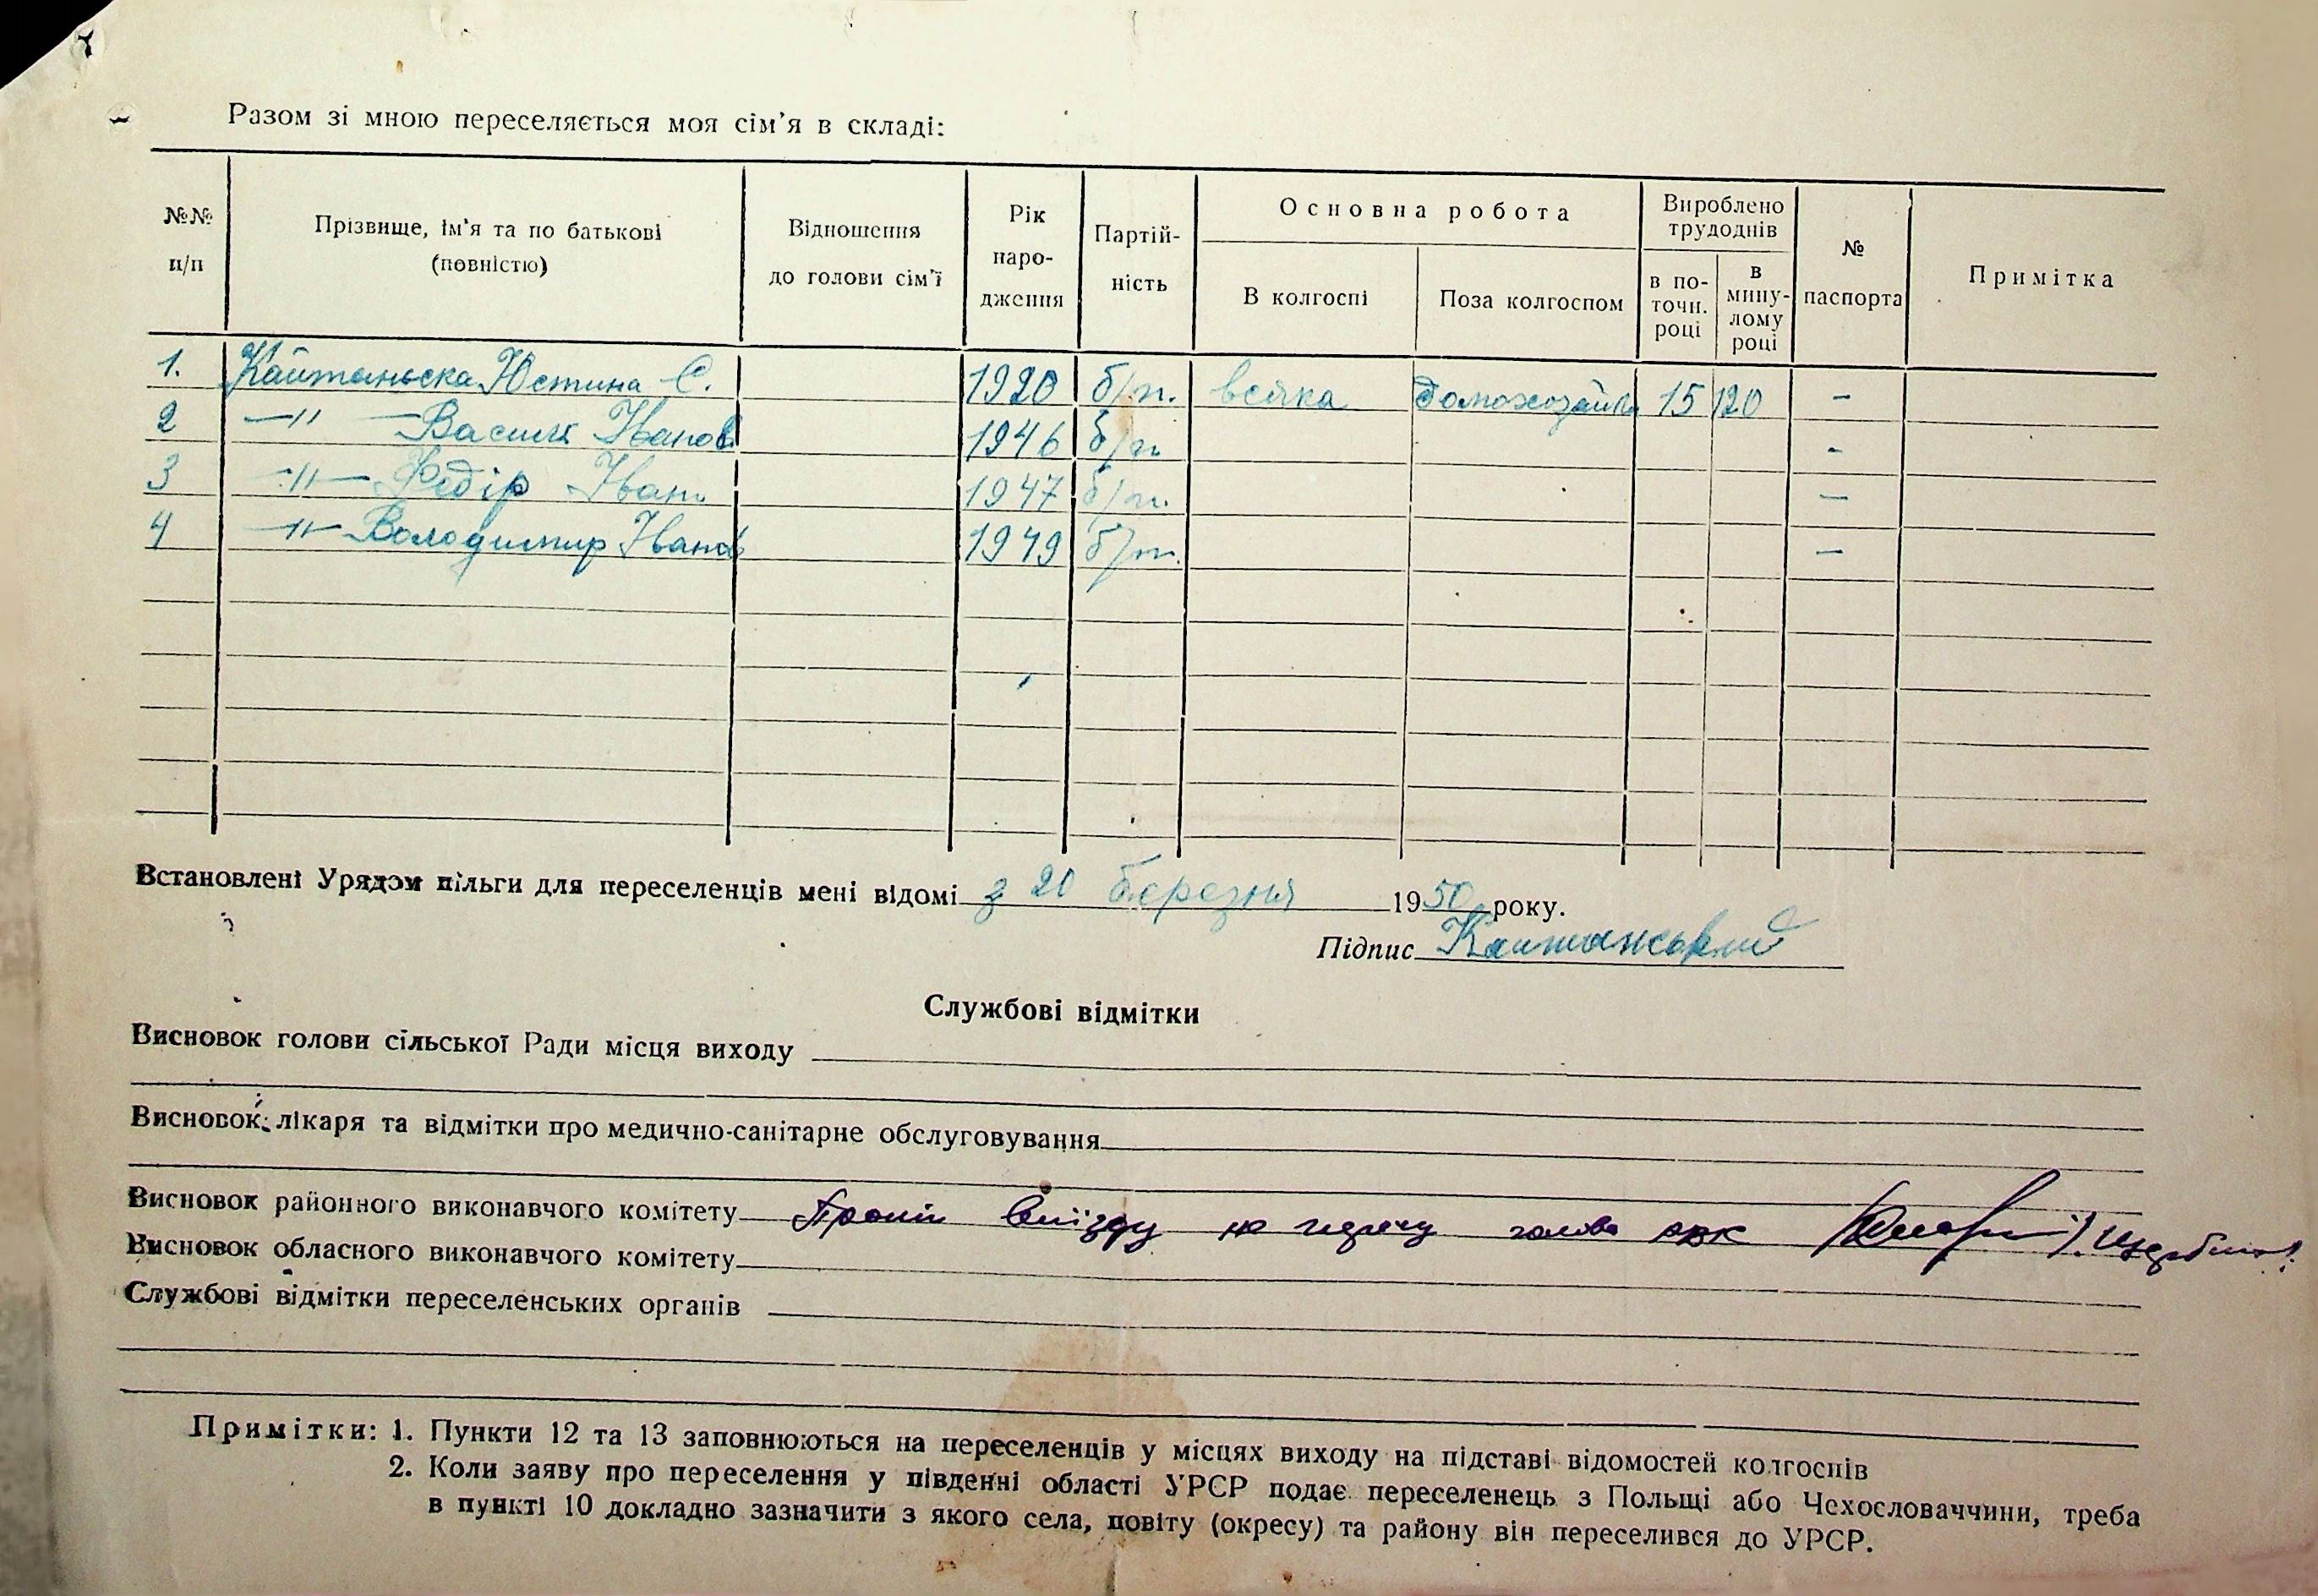 Разом зі мною переселяється моя сім'я в складі:
№№ п/п
Прізвище, ім'я та по батькові (повністю)
Відношення до голови сім'ї
Рік наро-дження
Партій-ність
Основна робота
В колгоспі
Поза колгоспом
Вироблено трудоднів
в по-точн. році
в мину-лому році
№ паспорта
Примітка
1. Кайтанська Юстина С. 1920 б/п. всяка домохозяйка 15 120 -
2 —"— Василь Іванов 1946 б/п -
3 —"— Федір Іван. 1947 б/п. —
4 —"— Володимир Іванов 1949 б/п. —
Встановлені Урядом пільги для переселенців мені відомі з 20 березня 1950 року.
Підпис Кайтанський
Службові відмітки
Висновок голови сільської Ради місця виходу
Висновок лікаря та відмітки про медично-санітарне обслуговування
Висновок районного виконавчого комітету Проти виїзду не заперечу голова РВК
Висновок обласного виконавчого комітету
Службові відмітки переселенських органів
Примітки: 1. Пункти 12 та 13 заповнюються на переселенців у місцях виходу на підставі відомостей колгоспів
2. Коли заяву про переселення у південні області УРСР подає переселенець з Польщі або Чехословаччини, треба
в пункті 10 докладно зазначити з якого села, повіту (окресу) та району він переселився до УРСР.